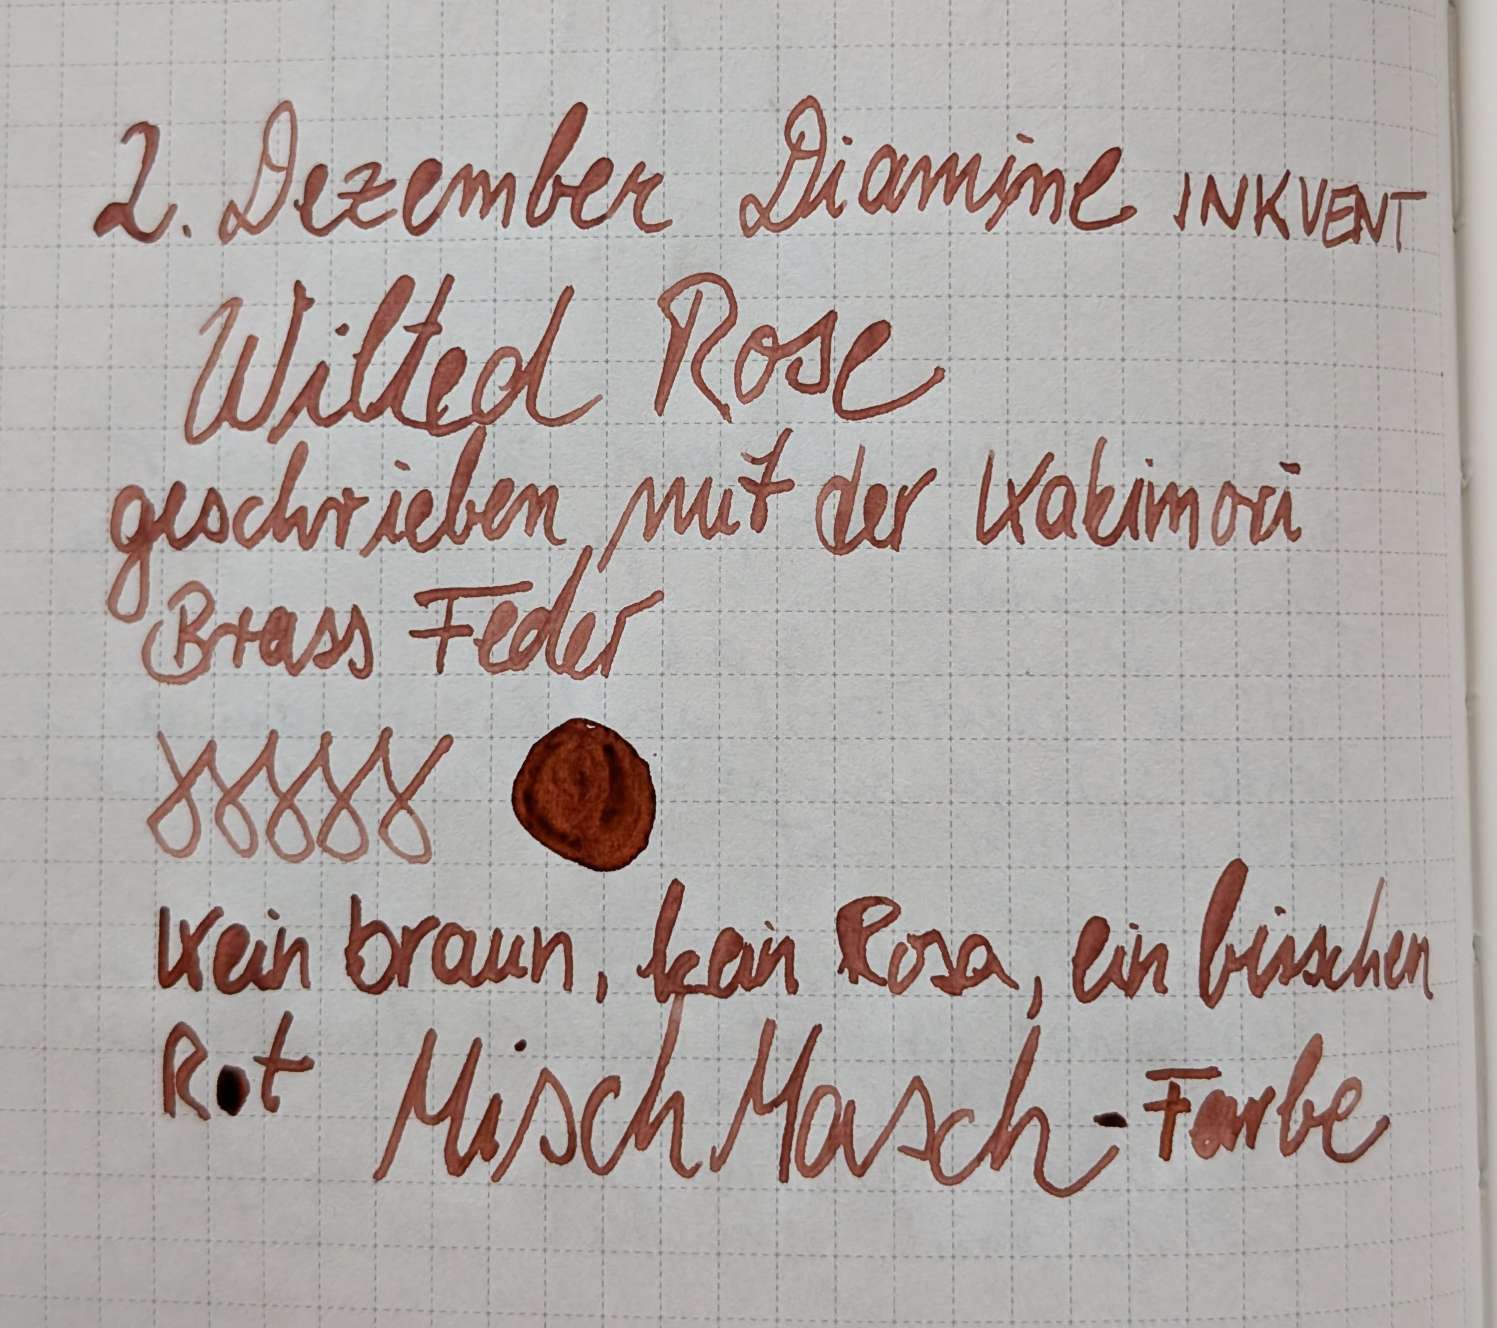 2. Dezember Diamine INKVENT
Wilted Rose
geschrieben mit der Kakimori
Brass Feder
Kein braun, kein Rosa, ein bisschen
Rot MischMasch-Farbe